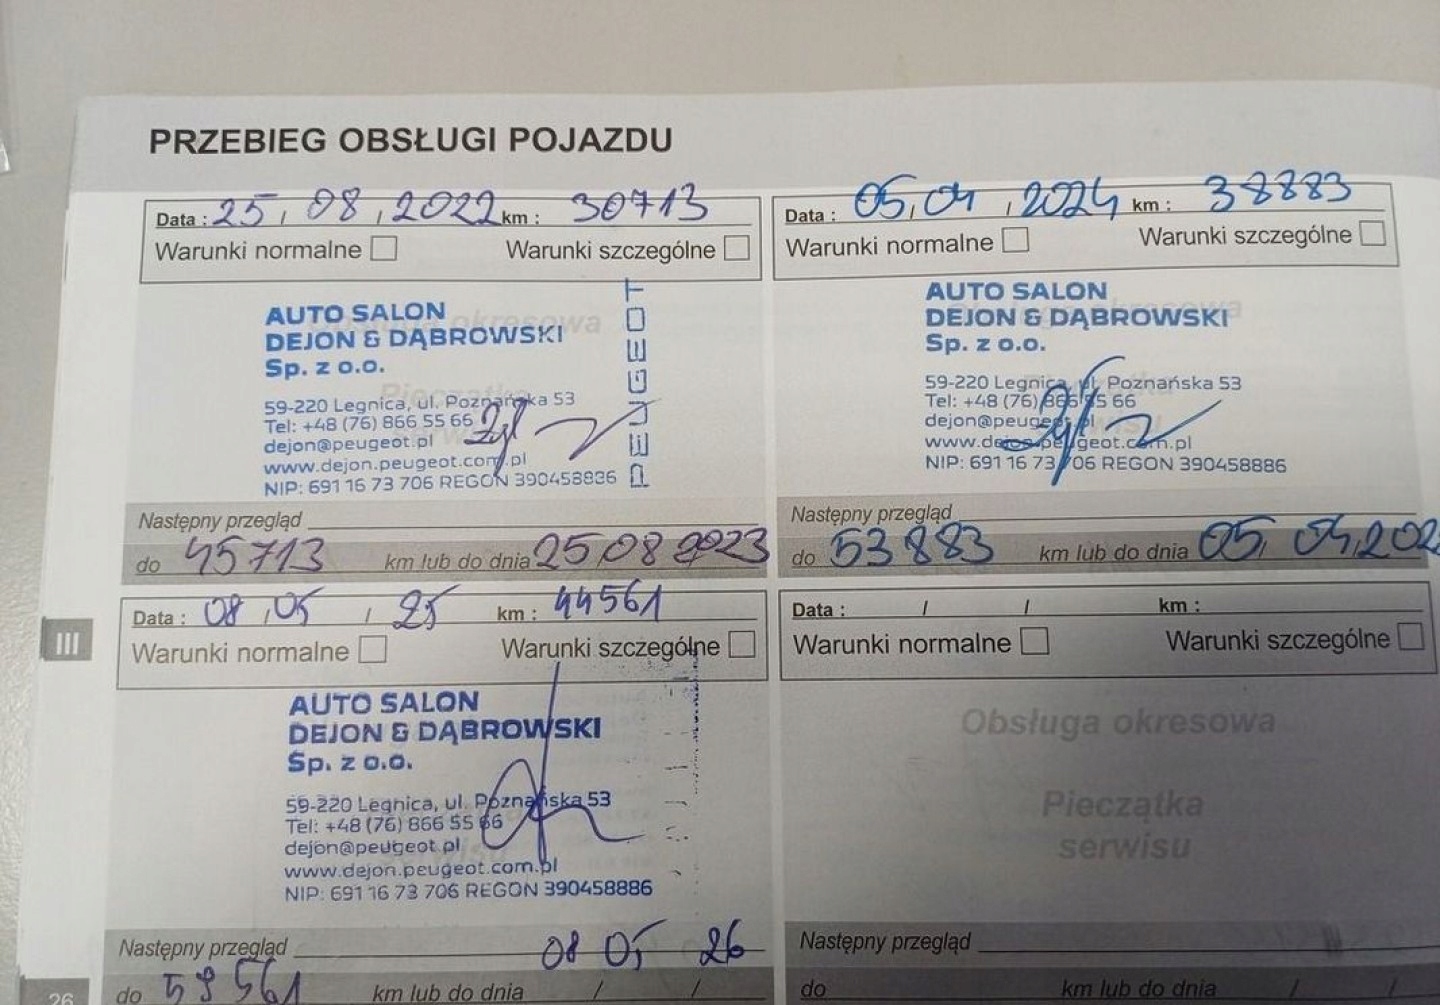 PRZEBIEG OBSŁUGI POJAZDU
Data : 25, 08, 2022 km : 30713
Warunki normalne Warunki szczególne
AUTO SALON
DEJON & DĄBROWSKI
Sp. z o.o.
59-220 Legnica, ul. Poznańska 53
Tel: +48 (76) 866 55 66
dejon@peugeot.pl
www.dejon.peugeot.com.pl
NIP: 691 16 73 706 REGON 390458886
PEUGEOT
Obsługa okresowa
Pieczątka
serwisu
Następny przegląd
do 45713 km lub do dnia 25,08 2023
Data : 05,04, 2024 km : 38883
Warunki normalne Warunki szczególne
AUTO SALON
DEJON & DĄBROWSKI
Sp. z o.o.
59-220 Legnica, ul. Poznańska 53
Tel: +48 (76) 866 55 66
dejon@peugeot.pl
www.dejon.peugeot.com.pl
NIP: 691 16 73 706 REGON 390458886
Następny przegląd
do 53883 km lub do dnia 05, 04,202
III
Data : 08,05 / 25 km : 44561
Warunki normalne Warunki szczególne
AUTO SALON
DEJON & DĄBROWSKI
Sp. z o.o.
59-220 Legnica, ul. Poznańska 53
Tel: +48 (76) 866 55 66
dejon@peugeot.pl
www.dejon.peugeot.com.pl
NIP: 691 16 73 706 REGON 390458886
Następny przegląd 08 05, 26
do 59561 km lub do dnia / /
Data : / / km :
Warunki normalne Warunki szczególne
Obsługa okresowa
Pieczątka
serwisu
Następny przegląd
do km lub do dnia / /
26